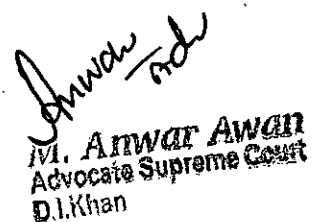 M. Anwar Awan
Advocate Supreme Court
D.I.Khan